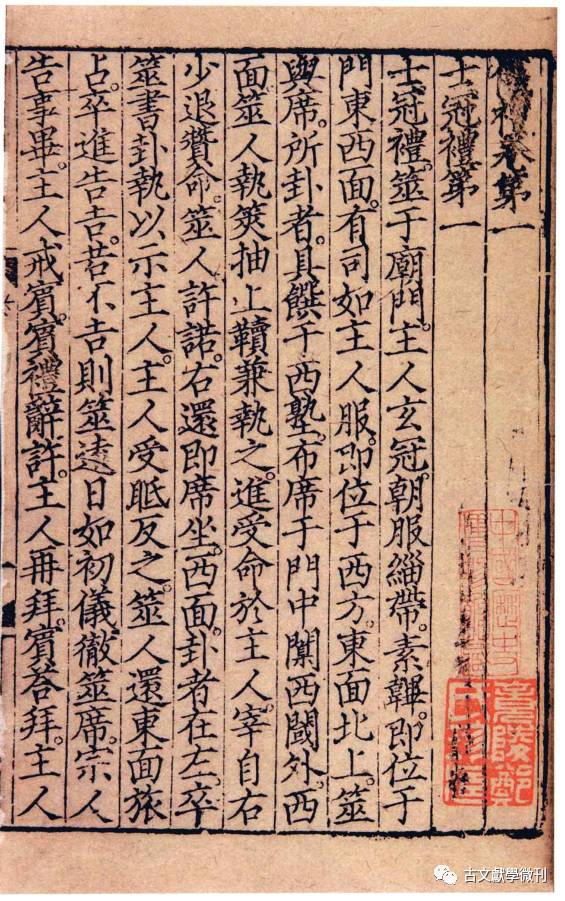 儀禮卷第一
士冠禮第一
士冠禮。筮于廟門。主人玄冠朝服緇帶。素韠。即位于
門東西面。有司如主人服。即位于西方。東面北上。筮
與席。所卦者具饌于西塾。布席于門中闑西閾外。西
面筮人執筴抽上韇兼執之。進受命於主人。宰自右
少退贊命。筮人許諾。右還即席坐。西面。卦者在左。卒
筮書卦執以示主人。主人受眡反之。筮人還東面旅
占。卒進告吉。若不吉則筮遠日如初儀。徹筮席。宗人
告事畢。主人戒賓。賓禮辭許。主人再拜。賓荅拜。主人
古文獻學微刊